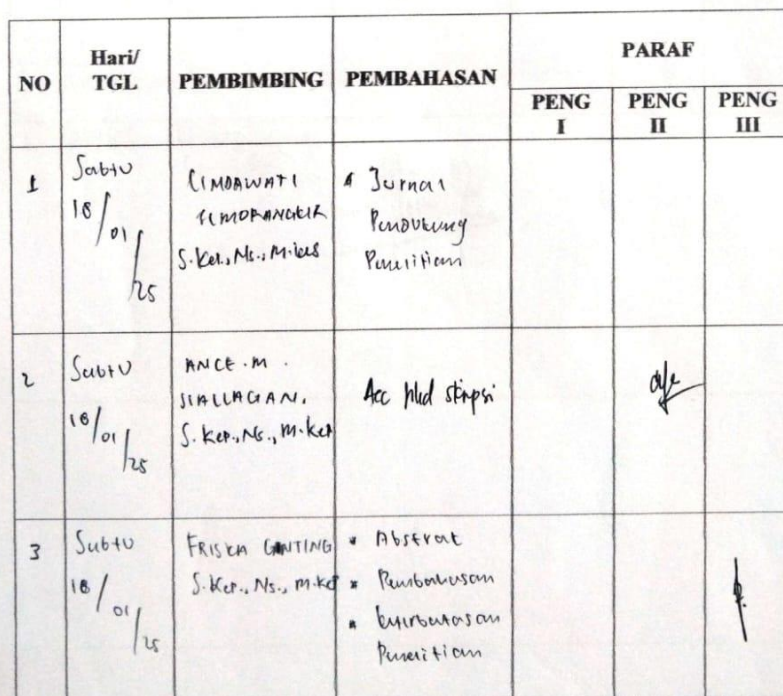 NO
Hari/
TGL
PEMBIMBING
PEMBAHASAN
PARAF
PENG
I
PENG
II
PENG
III
1
Sabtu
18/01/25
LIMDAWATI
SIMORANGKIR
S.Kep., Ns., M.Kes
Jurnal
Pendukung
Penelitian
2
Sabtu
18/01/25
ANCE.M.
SIALLAGAN.
S.Kep., Ns., M.Kep
Acc skripsi
3
Sabtu
18/01/25
FRISKA GINTING
S.Kep., Ns., M.Kep
* Abstrak
* Pembahasan
* Keterbatasan
Penelitian